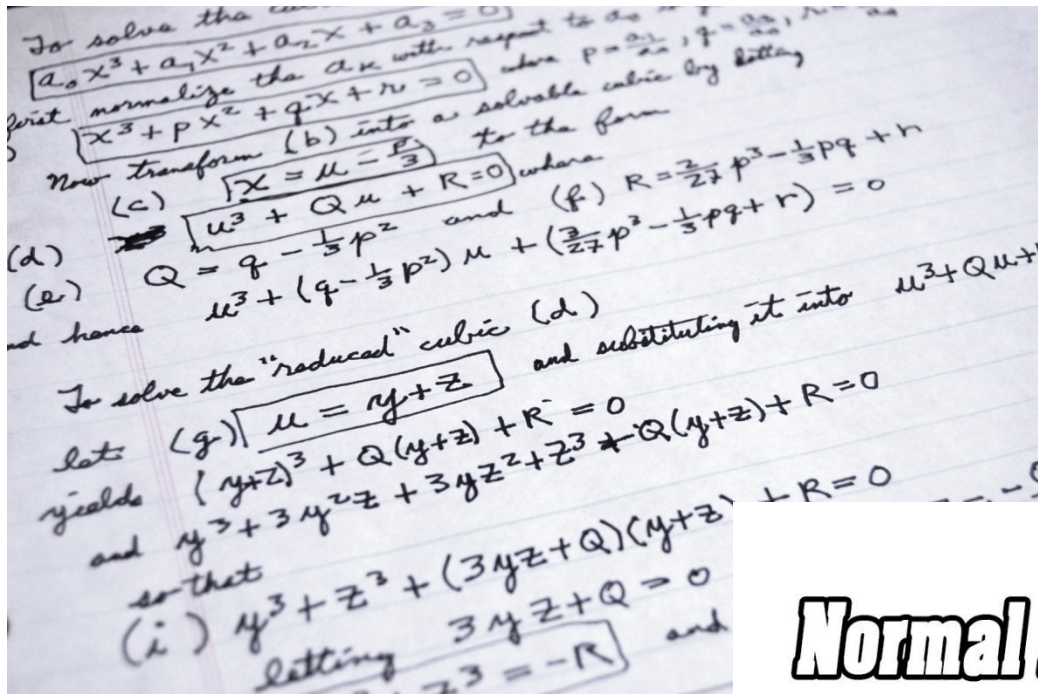 To solve the
a₀x³ + a₁x² + a₂x + a₃ = 0
first normalize the aₖ with respect to a₀
x³ + px² + qx + r = 0 where p = a₁/a₀, q = a₂/a₀,
Now transform (b) into a solvable cubic by letting
(c) x = u - p/3 to the form
(d) u³ + Qu + R = 0 where
(e) Q = q - 1/3 p² and (f) R = 2/27 p³ - 1/3 pq + r
and hence u³ + (q - 1/3 p²) u + (2/27 p³ - 1/3 pq + r) = 0
To solve the "reduced" cubic (d)
let (g) u = y + z and substituting it into u³ + Qu +
yields (y+z)³ + Q(y+z) + R = 0
and y³ + 3y²z + 3yz² + z³ + Q(y+z) + R = 0
so that
(i) y³ + z³ + (3yz + Q)(y+z) + R = 0
letting 3yz + Q = 0
z³ = -R and
Normal